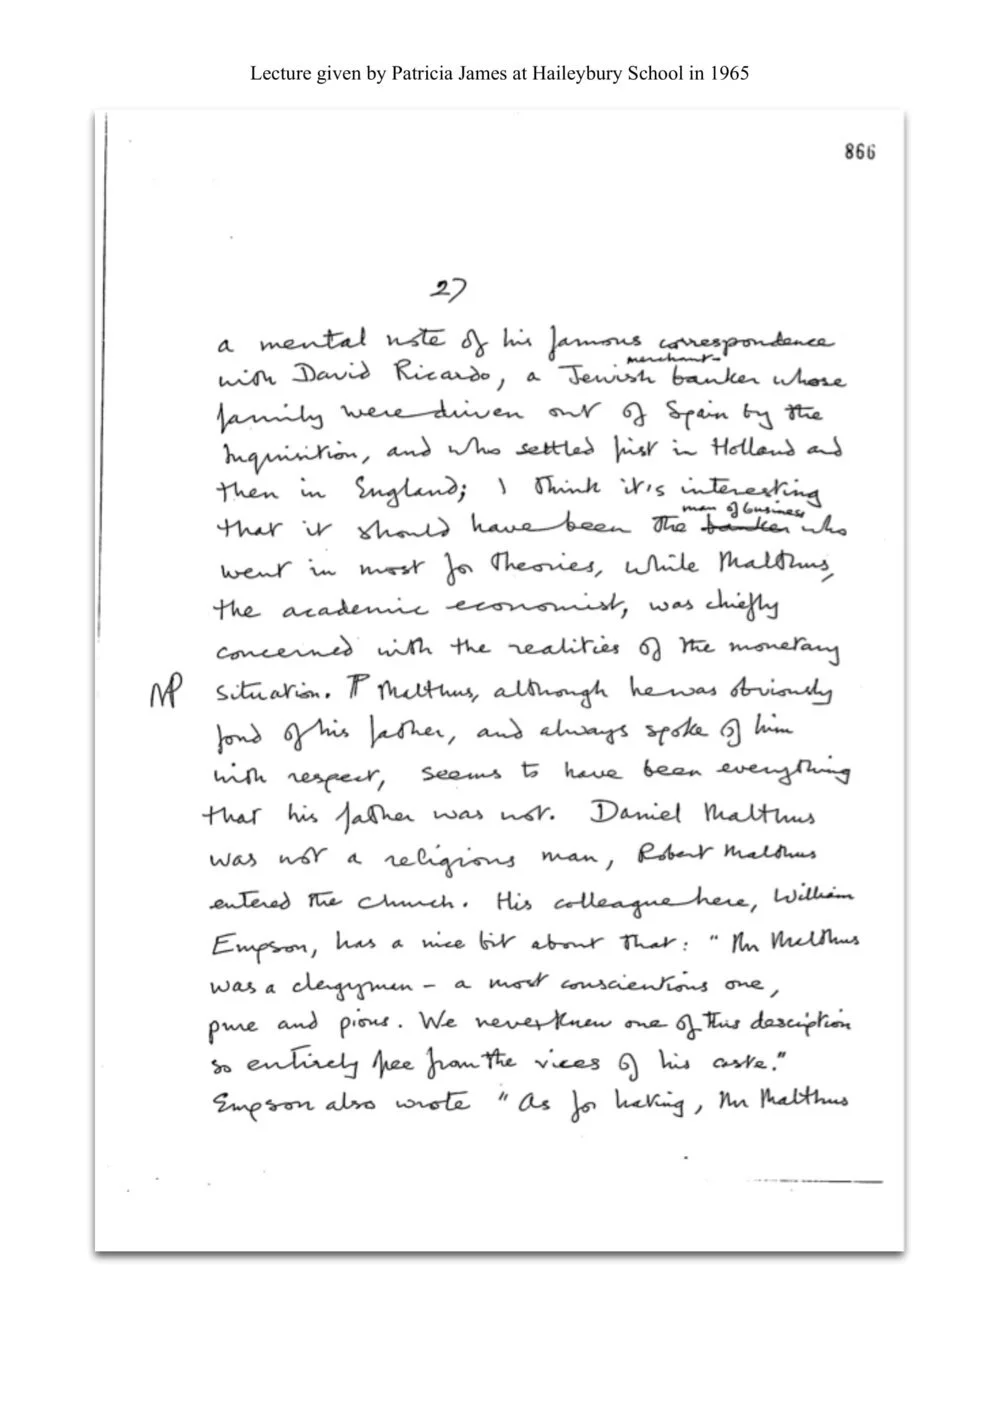 Lecture given by Patricia James at Haileybury School in 1965
866
27
a mental note of his famous correspondence
merchant-
with David Ricardo, a Jewish banker whose
family were driven out of Spain by the
Inquisition, and who settled first in Holland and
then in England; I think it's interesting
man of business
that it should have been the banker who
went in most for theories, while Malthus,
the academic economist, was chiefly
concerned with the realities of the monetary
NP situation. Malthus, although he was obviously
fond of his father, and always spoke of him
with respect, seems to have been everything
that his father was not. Daniel Malthus
was not a religious man, Robert Malthus
entered the Church. His colleague here, William
Empson, has a nice bit about that: "Mr Malthus
was a clergyman – a most conscientious one,
pure and pious. We never knew one of this description
so entirely free from the vices of his caste."
Empson also wrote "As for hating, Mr Malthus